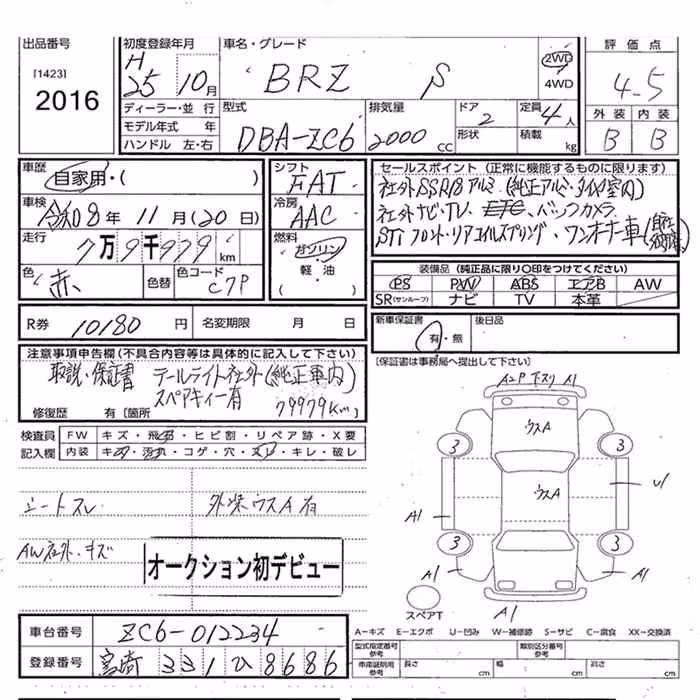 出品番号
[1423]
2016
初度登録年月
H 25年10月
車名・グレード
BRZ S
2WD
4WD
評価点
4.5
外装 内装
B B
ディーラー・並行
モデル年式 年
ハンドル 左・右
型式
DBA-ZC6
排気量
2000 CC
ドア
2
形状
定員
4人
積載
kg
車歴
自家用・( )
車検
令和8年11月(20日)
走行
7万9千979km
色
赤
色替
色コード
C7P
シフト
FAT
冷房
AAC
燃料
ガソリン
軽・油
( )
セールスポイント(正常に機能するものに限ります)
社外SSR18アルミ(純正アルミ・タイヤ室内)
社外ナビ・TV、ETC、バックカメラ
STi フロント・リアコイルスプリング、ワンオーナー車
装備品(純正品に限り〇印をつけてください)
PS PW ABS エアB AW
SR(サンルーフ) ナビ TV 本革
R券 10180円
名変期限 月 日
新車保証書
有・無
後日品
[保証書は事務局へ提出して下さい]
注意事項申告欄(不具合内容等は具体的に記入して下さい)
取説・保証書 テールライト社外(純正車内)
スペアキィー有
79979Km
修復歴 有 [箇所
検査員 FW キズ・飛石・ヒビ割・リペア跡・X要
記入欄 内装 キズ・汚れ・コゲ・穴・スレ・キレ・破レ
シートスレ 外装ウスA有
AW社外・キズ
オークション初デビュー
A2P 下スリ A1
ウスA
3 3
ウスA
U1
A1
3 3
A1 A1
スペアT
A1
車台番号 ZC6-012234
登録番号 宮崎 331 ひ 8686
A-キズ E-エクボ U-凹み W-補修跡 S-サビ C-腐食 XX-交換済
型式指定番号 参考
類別区分番号 参考
車庫証明用 参考
長さ cm 幅 cm 高さ cm